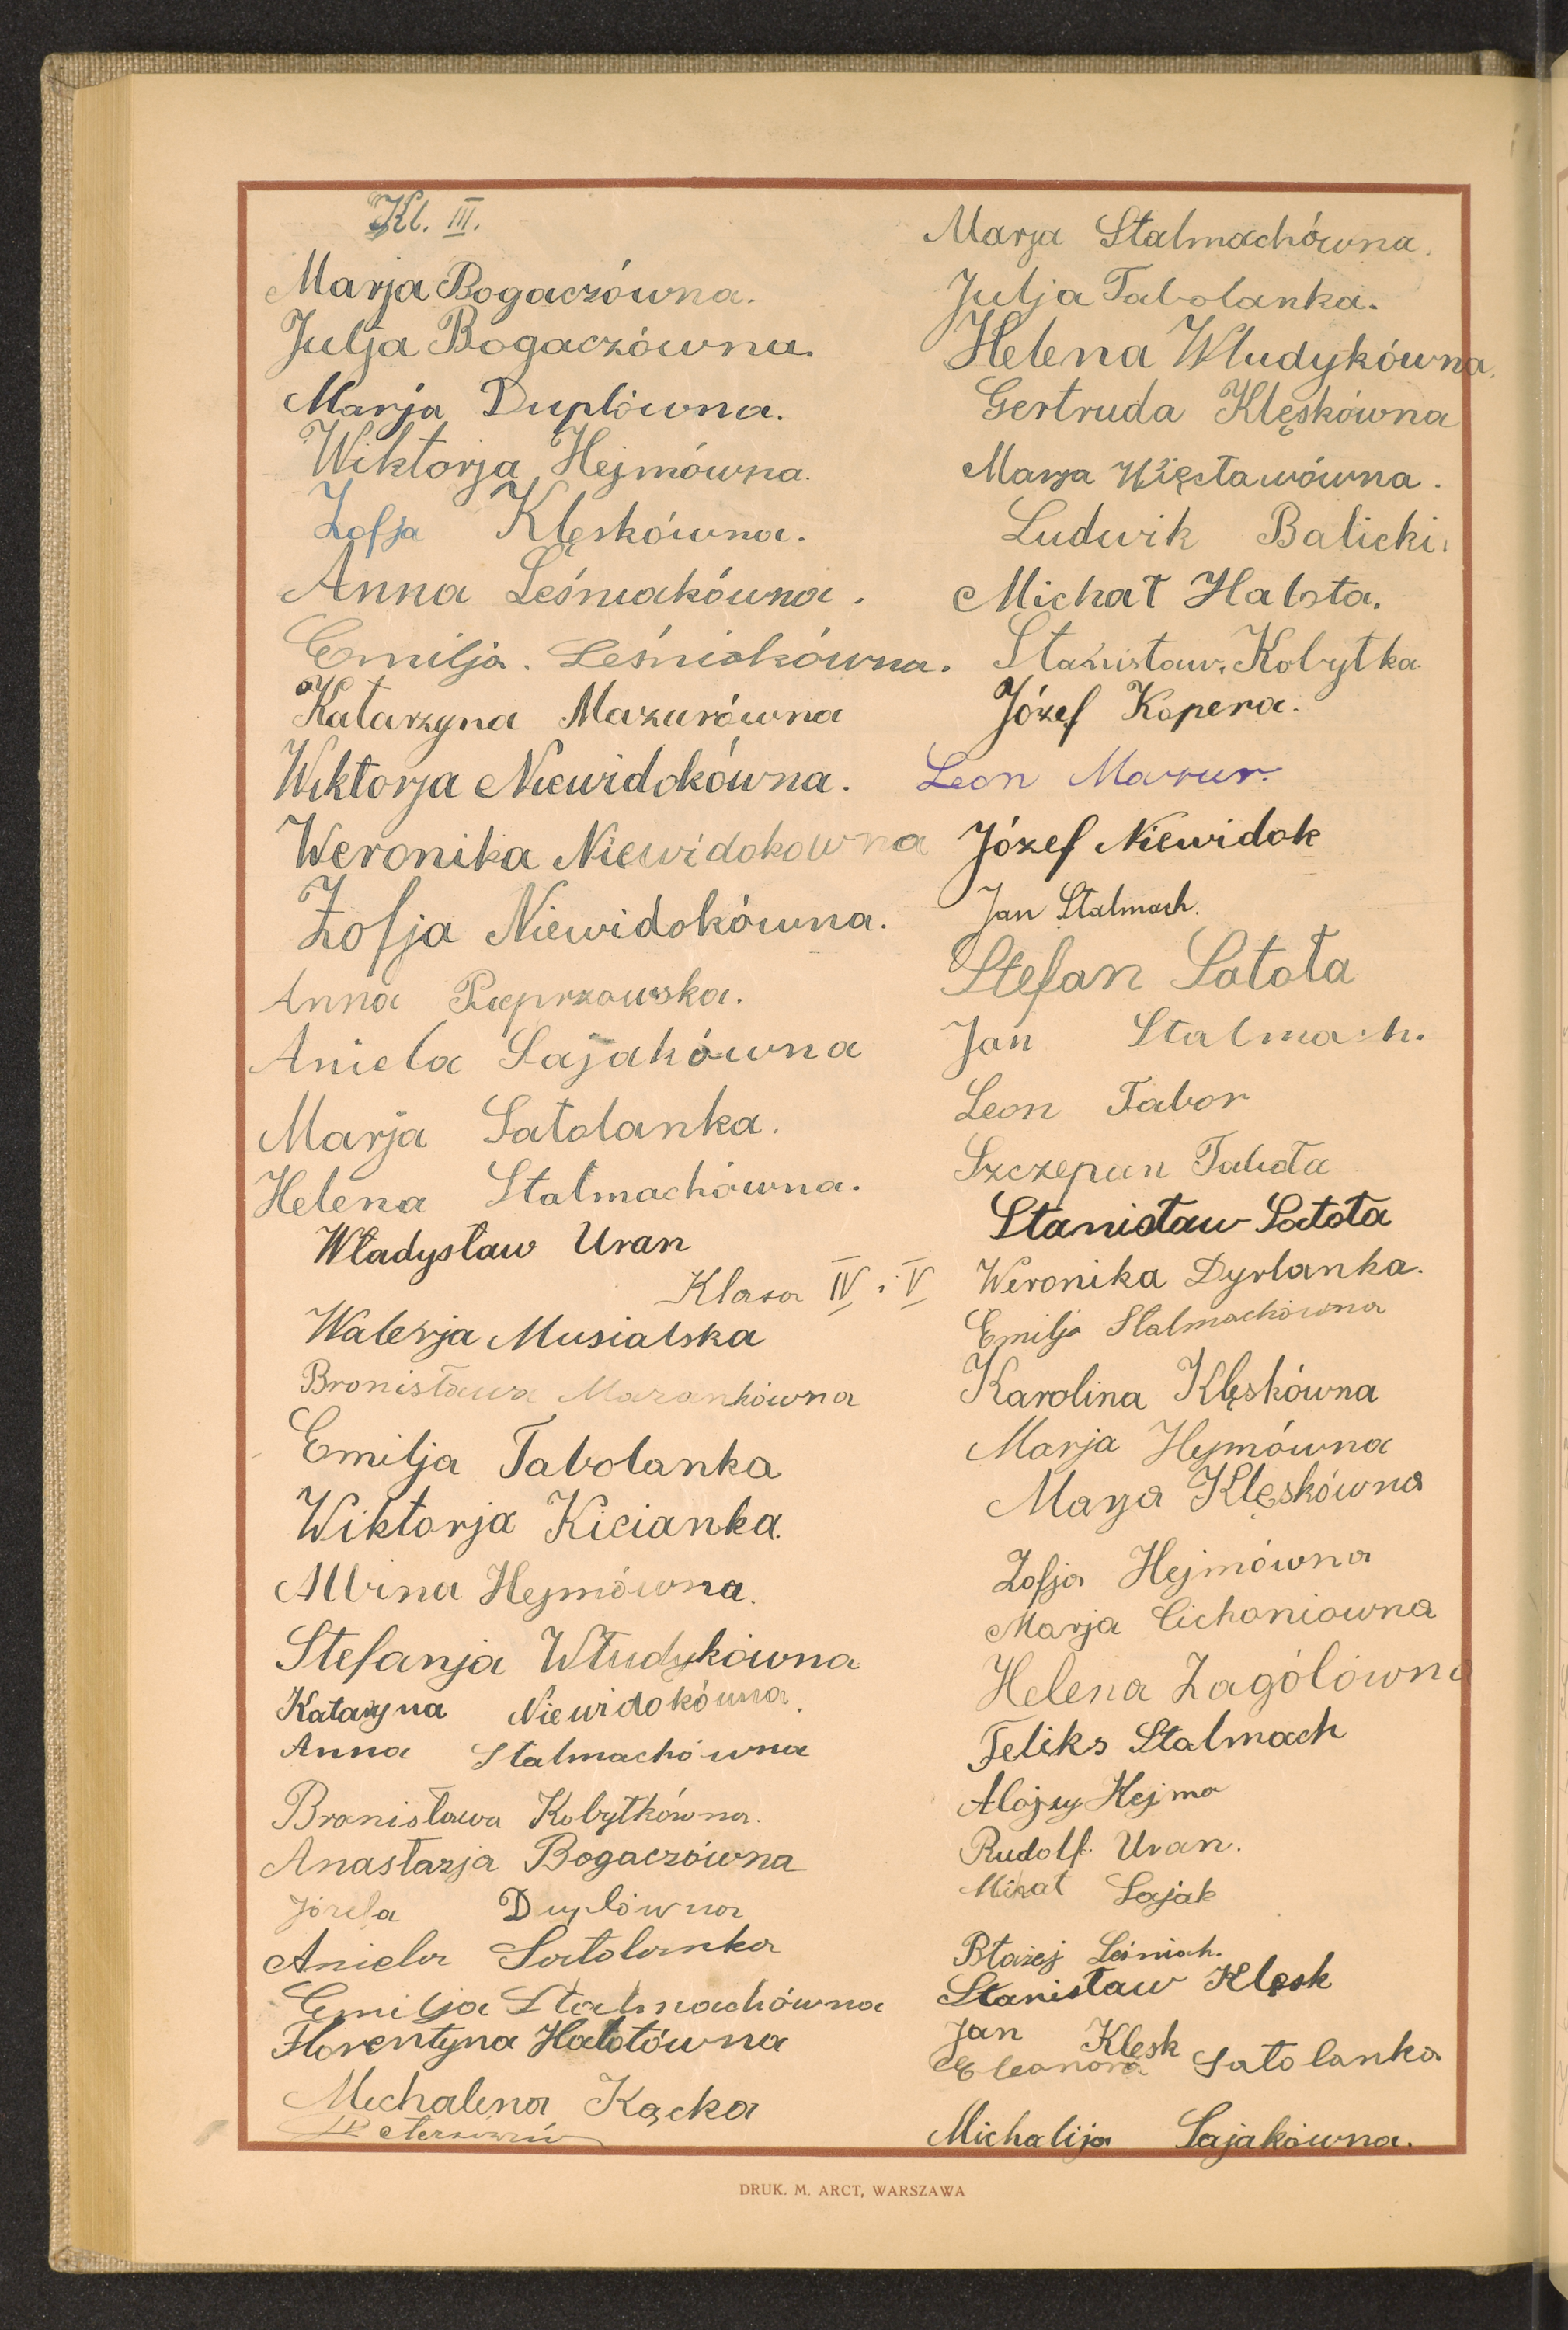 Kl. III.
Marja Bogaczówna.
Julja Bogaczówna.
Marja Duplówna.
Wiktorja Hejmówna.
Zofja Klęskówna.
Anna Leśniakówna.
Emilja. Leśniakówna.
Katarzyna Mazurówna
Wiktorja Niewidokówna.
Weronika Niewidokowna
Zofja Niewidokówna.
Anna Pieprzowska.
Aniela Sajakówna
Marja Satolanka.
Helena Stalmachówna.
Władysław Uran
Marja Stalmachówna.
Julja Tabolanka.
Helena Włudykówna.
Gertruda Klęskówna
Marja Więcławówna.
Ludwik Balicki.
Michał Hałota.
Stanisław. Kobyłka.
Józef Kopera.
Leon Mazur.
Józef Niewidok
Jan Stalmach.
Stefan Satoła
Jan Stalmach.
Leon Tabor
Szczepan Taboła
Stanisław Satoła
Klasa IV i V
Walerja Musialska
Bronisława Mazankówna
Emilja Tabolanka
Wiktorja Kicianka.
Albina Hejmówna.
Stefanja Włudykówna
Katarzyna Niewidokówna.
Anna Stalmachówna
Bronisława Kobyłkówna.
Anastazja Bogaczówna
Józefa Duplówna
Aniela Satolanka
Emilja Stalmachówna
Florentyna Hałotówna
Michalina Kącka
Weronika Dyrlanka.
Emilja Stalmachówna
Karolina Klęskówna
Marja Hejmówna
Marja Klęskówna
Zofja Hejmówna
Marja Cichoniowna
Helena Zagólówna
Feliks Stalmach
Alojzy Hejmo
Rudolf. Uran.
Sajak
Błażej Leśniak.
Stanisław Klęsk
Jan Klęsk
Eleanora Satolanka
Michalija Sajakówna.
DRUK. M. ARCT, WARSZAWA